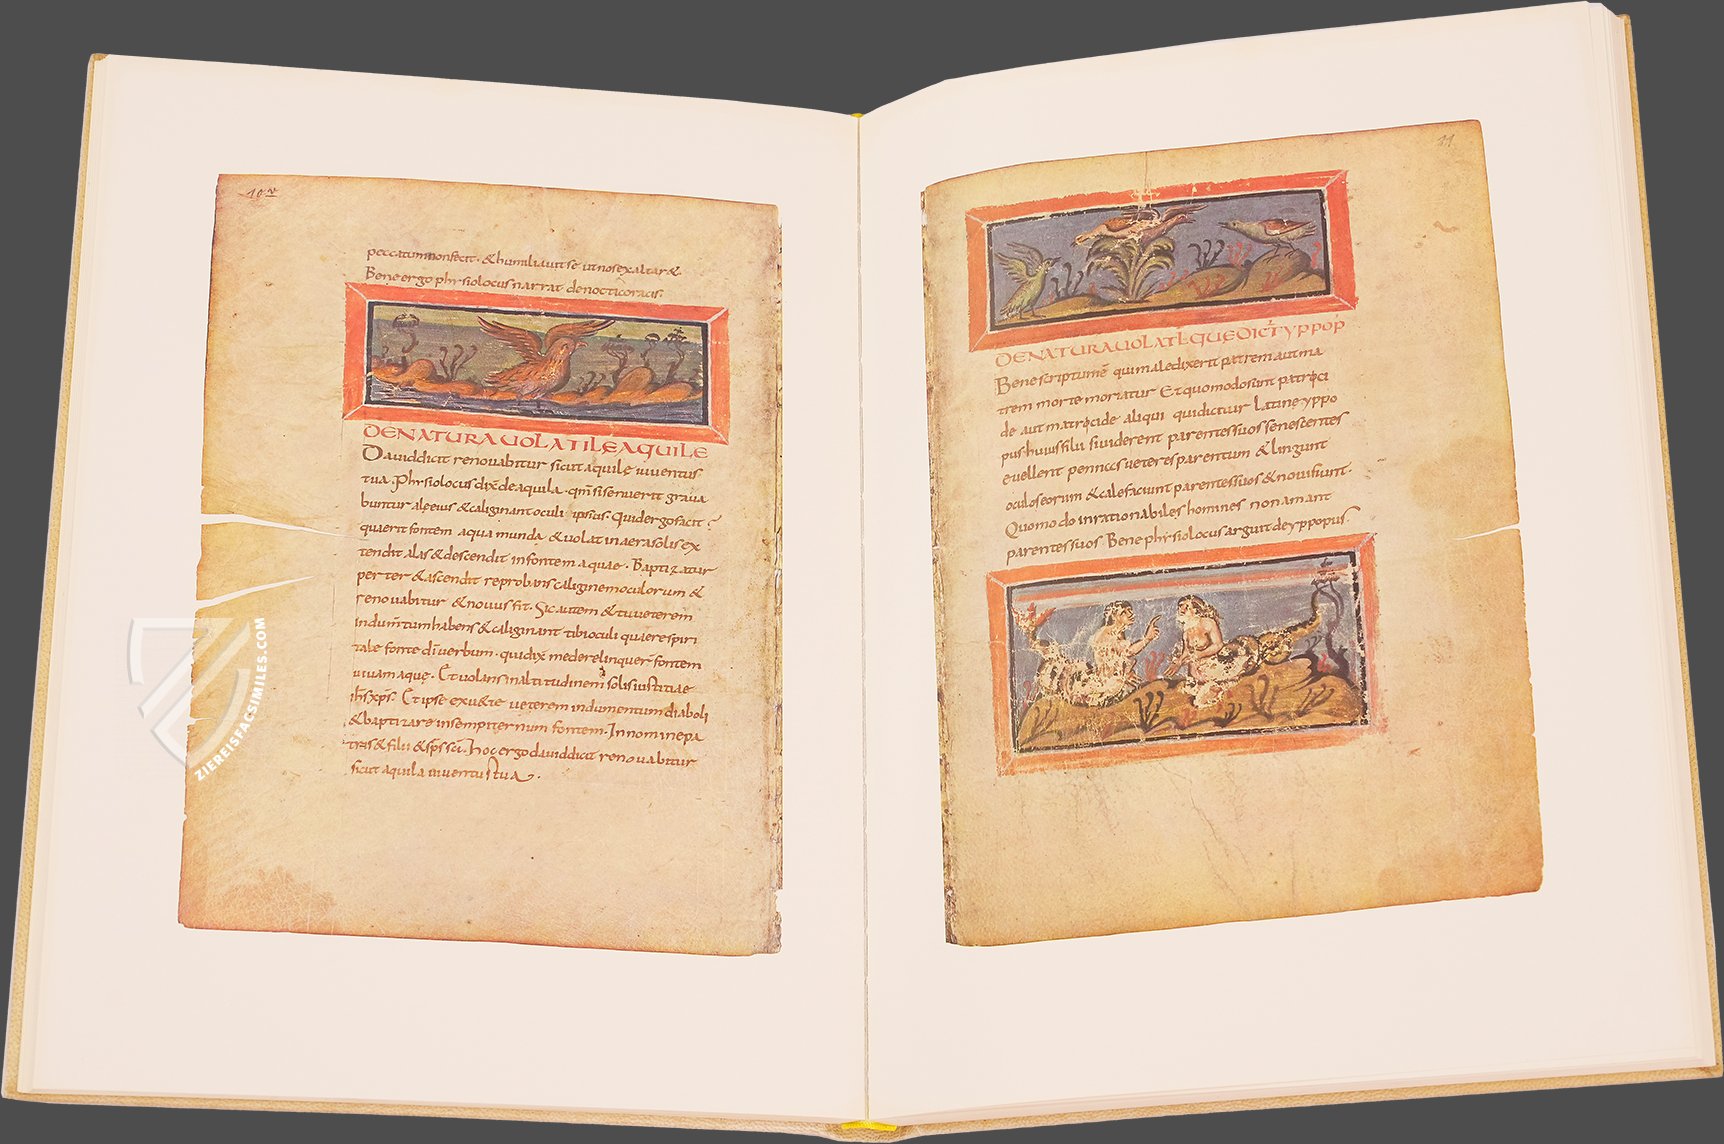 10v
peccatum non fecit. & humiliavit se ut nos exaltar&
Bene ergo phisiolocus narrat de nocticoracis.
DENATURAUOLATILEAQUILE
Dauid dicit renouabitur sicut aquilę iuuentus
tua. Phisiolocus dix̄ de aquila. qm̄ si senuerit graua
buntur alę eius & caliginant oculi ipsius. Quid ergo facit?
quaerit fontem aqua munda & uolat in aera solis ex
tendit alas & descendit in fontem aquae. Baptizatur
per ter & ascendit reprobans caliginem oculorum &
renouabitur & nouus fit. Sic autem & tu ueterem
indum̄tum habens & caliginant tibi oculi quaere spiri
tale fonte dī uerbum. qui dix̄ me dereliquer̄ fontem
uiuam aquę. Et uolans in altitudinem solis iustitiae
ihs xp̄s. Et ipse exu&e ueterem indumentum diaboli
& baptizare in sempiternum fontem. In nomine pa
tris & filii & sp̄s sc̄i. Hoc ergo dauid dicit renouabitur
sicut aquila iuuentus tua.
11
DENATURAUOLATLQUEDICT̄YPPOP̄
Bene scriptum ē qui maledixerit patrem aut ma
trem morte moriatur Et quomodo sunt patrici
de aut matricide aliqui qui dicitur Latine yppo
pus huius filii si uiderent parentes suos senescentes
euellent pennas ueteres parentum & lingunt
oculos eorum & calefaciunt parentes suos & novi fiunt.
Quomodo inrationabiles homines non amant
parentes suos. Bene phisiolocus arguit de yppopus.
ZIEREISFACSIMILES.COM